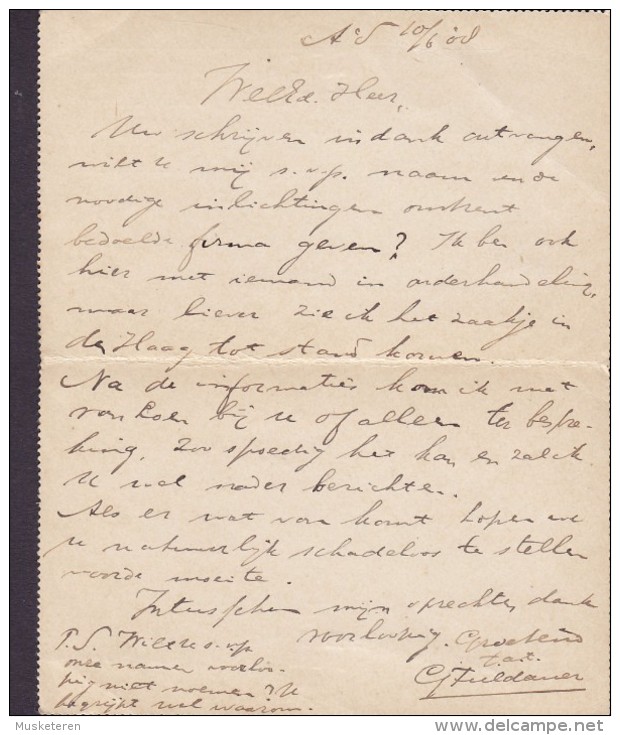 A'd 10/6 '08
WelEd. Heer,
Uw schrijven in dank ontvangen,
wilt U mij s.v.p. naam en de
noodige inlichtingen omtrent
bedoelde firma geven? Ik ben ook
hier met iemand in onderhandeling,
maar liever zie ik het zaakje in
den Haag tot stand komen.
Na de informaties kom ik met
van Loen bij U of alleen ter bespre-
king, zoo spoedig het kan en zal ik
U wel nader berichten.
Als er wat van komt hopen we
U natuurlijk schadeloos te stellen
voor de moeite.
Intusschen mijn oprechten dank
voorloopig. Groetend
P.S. Wilt U s.v.p.
onze namen voorloo-
pig niet noemen? U
begrijpt wel waarom.
Musketeren
delcampe.net